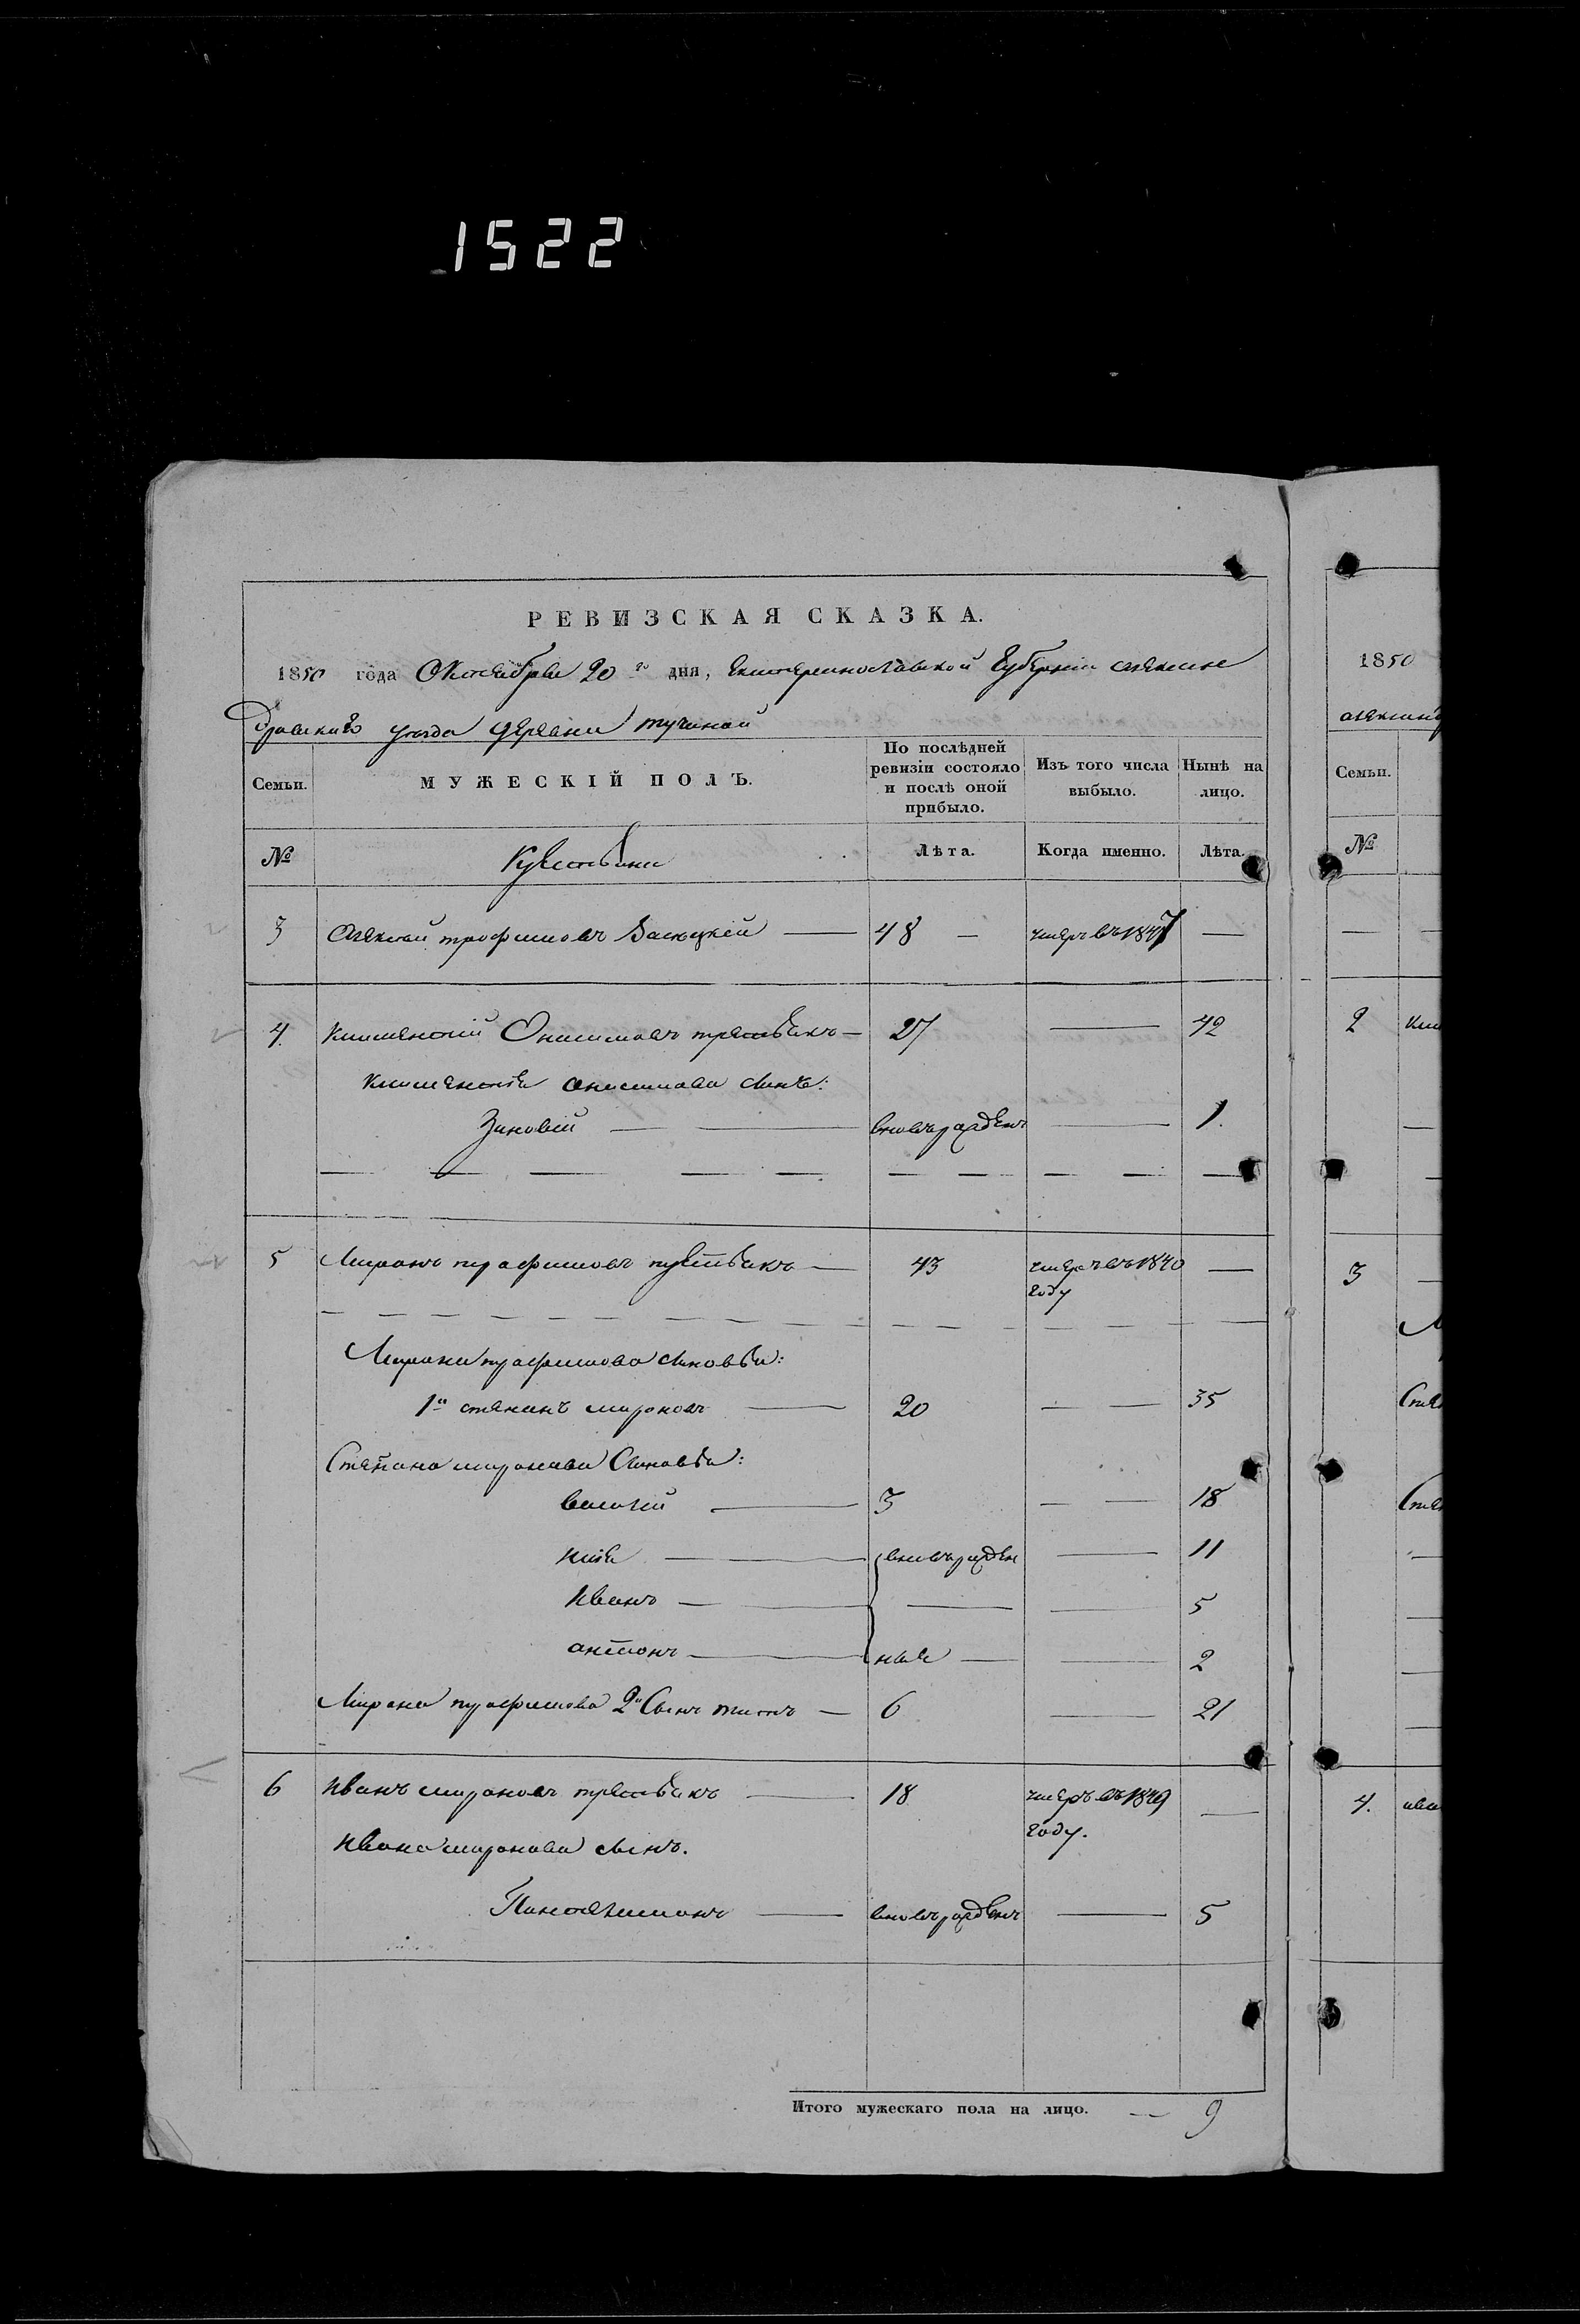 1522
РЕВИЗСКАЯ СКАЗКА.
1850 года Октября 20го дня, Екатеринославской Губернии алексан
дровскаго уезда деревни
Семьи.
МУЖЕСКІЙ ПОЛЪ.
По послѣдней ревизіи состояло и послѣ оной прибыло.
Изъ того числа выбыло.
Нынѣ на лицо.
№
Крестьяне
Лѣта.
Когда именно.
Лѣта.
3 Алексѣй трофимовъ — 48 — умеръ въ 1847 —
4. климентій Онисимовъ третьякъ — 27 — 42
климентія онисимова сынъ:
Зиновій — — вновьрожденъ — 1.
5 Миронъ трофимовъ третьякъ — 43 умеръ въ 1840 году —
Мирона трофимова сыновья:
1й степанъ мироновъ — 20 — — 35
Степана миронова Сыновья:
василій — 3 — — 18
илія — — вновьрожден — 11
Иванъ — — — — 5
антонъ — ные — — 2
Мирона трофимова 2й Сынъ титъ — 6 — 21
6 Иванъ мироновъ третьякъ — 18 умеръ въ 1849 году. —
Ивана миронова сынъ.
Пантелимонъ — вновьрожденъ — 5
Итого мужескаго пола на лицо. — 9
1850
александ
Семьи.
№
— —
2 кли
3 —
М
Степ
Степ
4. ива